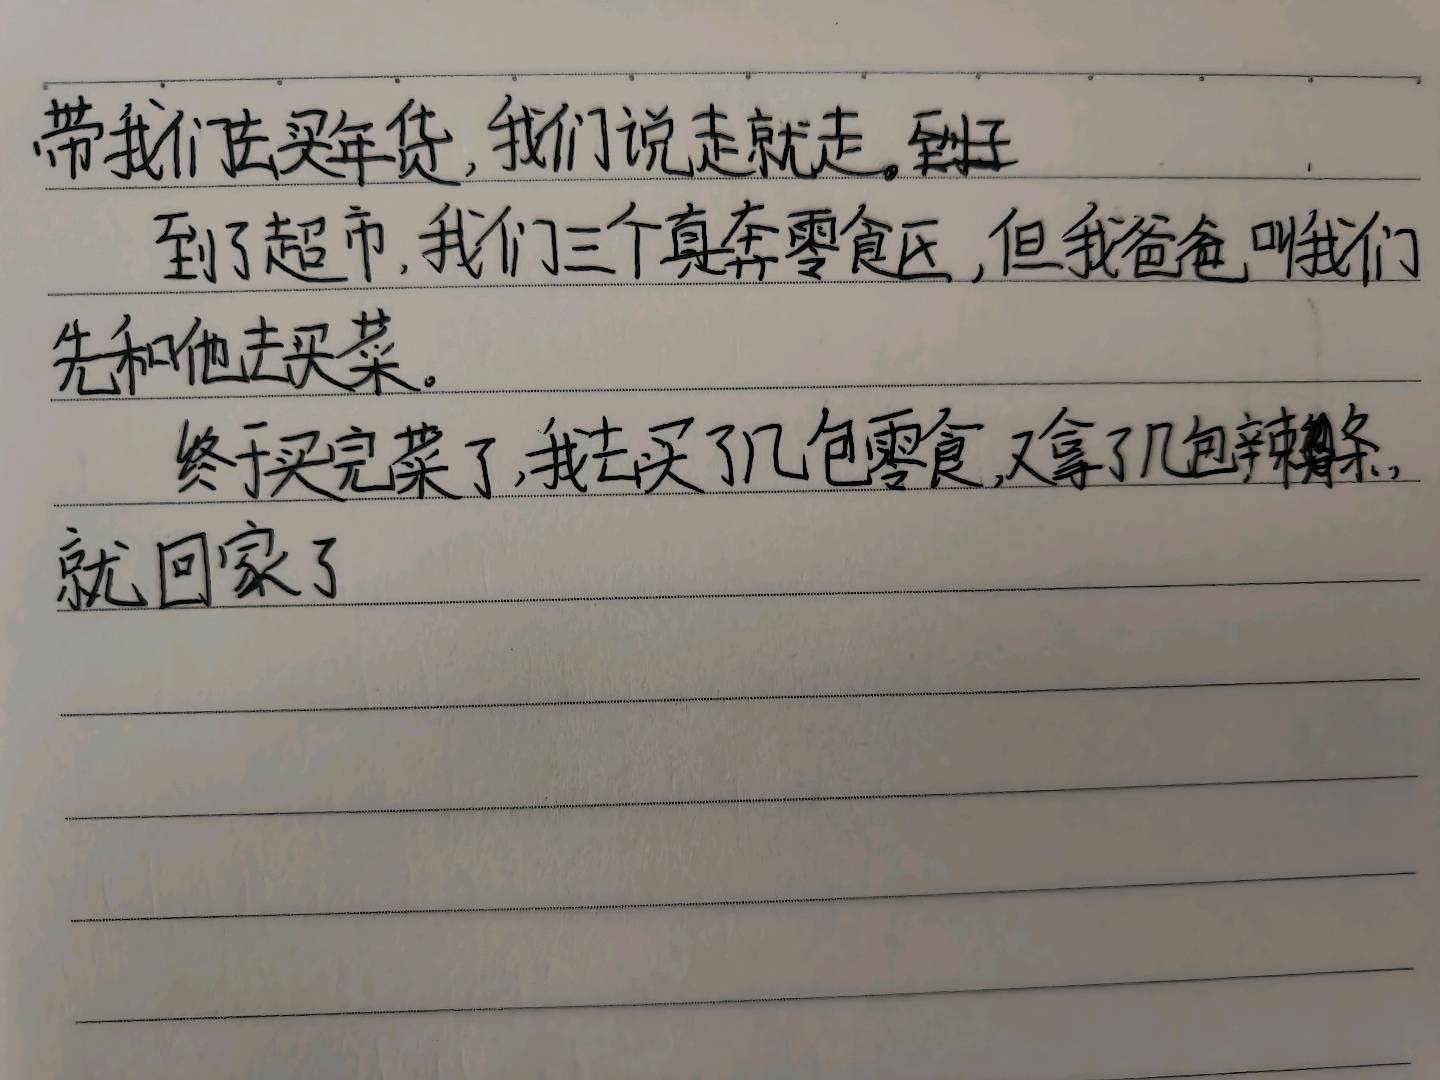 带我们去买年货，我们说走就走。
到了超市，我们三个真奔零食区，但我爸爸叫我们
先和他去买菜。
终于买完菜了，我去买了几包零食，又拿了几包辣条，
就回家了